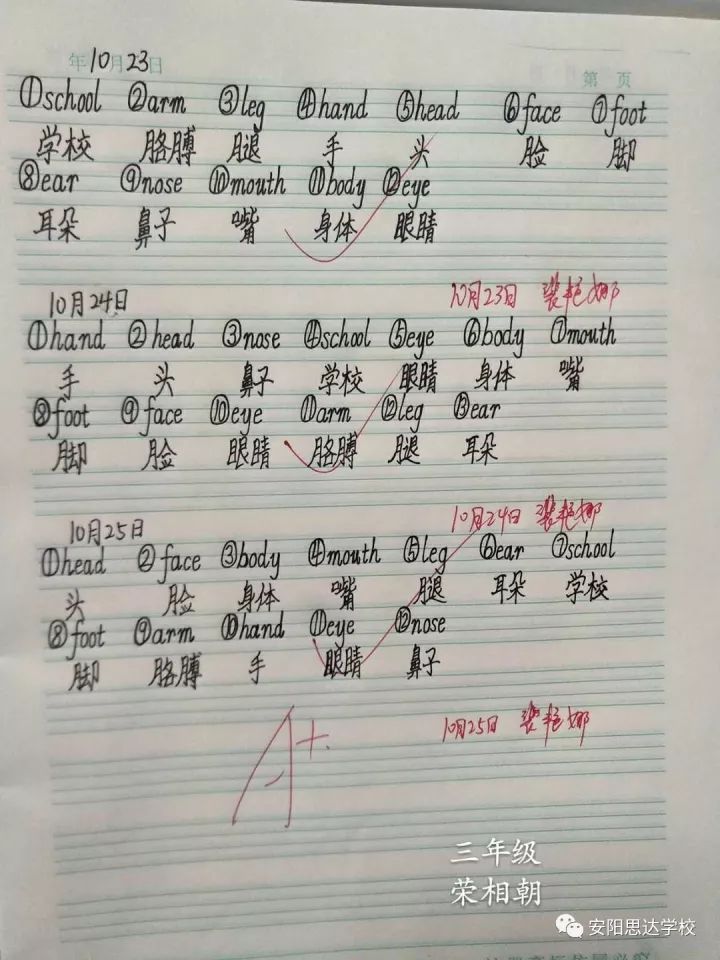 年10月23日
第 页
①school ②arm ③leg ④hand ⑤head ⑥face ⑦foot
学校 胳膊 腿 手 头 脸 脚
⑧ear ⑨nose ⑩mouth ⑪body ⑫eye
耳朵 鼻子 嘴 身体 眼睛
10月24日 10月23日 裴艳娜
①hand ②head ③nose ④school ⑤eye ⑥body ⑦mouth
手 头 鼻子 学校 眼睛 身体 嘴
⑧foot ⑨face ⑩eye ⑪arm ⑫leg ⑬ear
脚 脸 眼睛 胳膊 腿 耳朵
10月25日 10月24日 裴艳娜
①head ②face ③body ④mouth ⑤leg ⑥ear ⑦school
头 脸 身体 嘴 腿 耳朵 学校
⑧foot ⑨arm ⑩hand ⑪eye ⑫nose
脚 胳膊 手 眼睛 鼻子
A+ 10月25日 裴艳娜
三年级
荣相朝
安阳思达学校